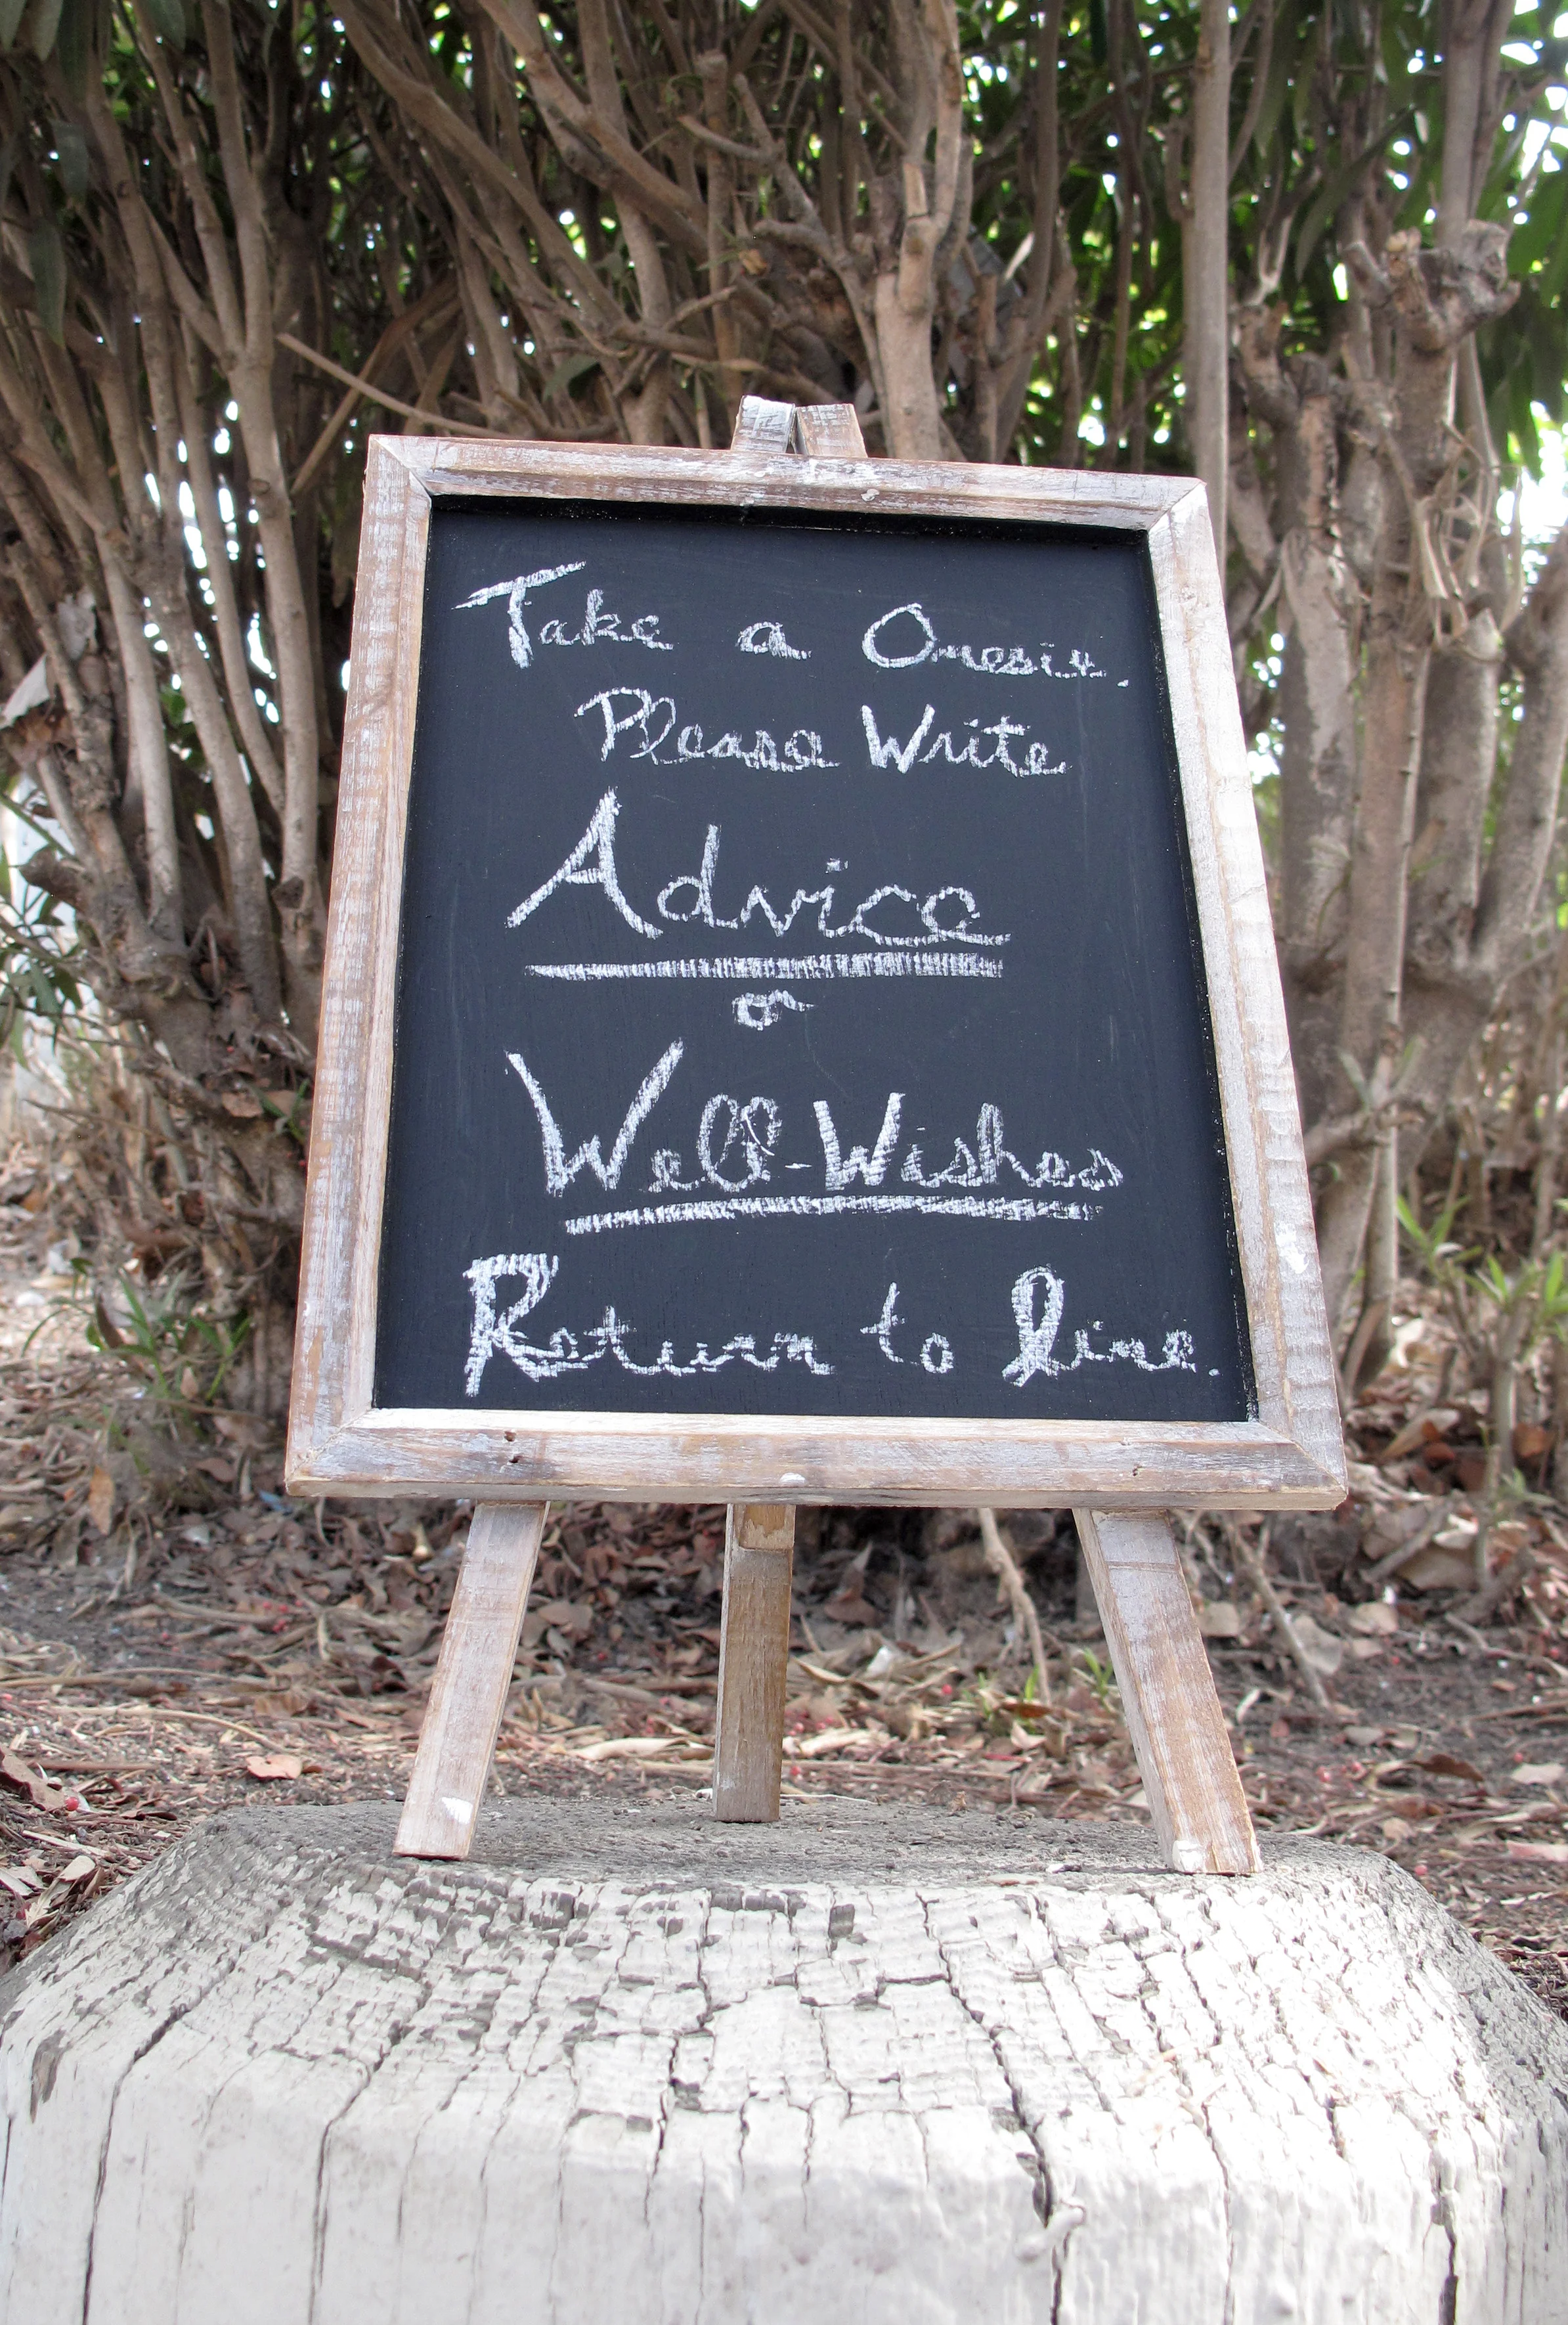 Take a Onesie.
Please Write
Advice
or
Well-Wishes
Return to line.